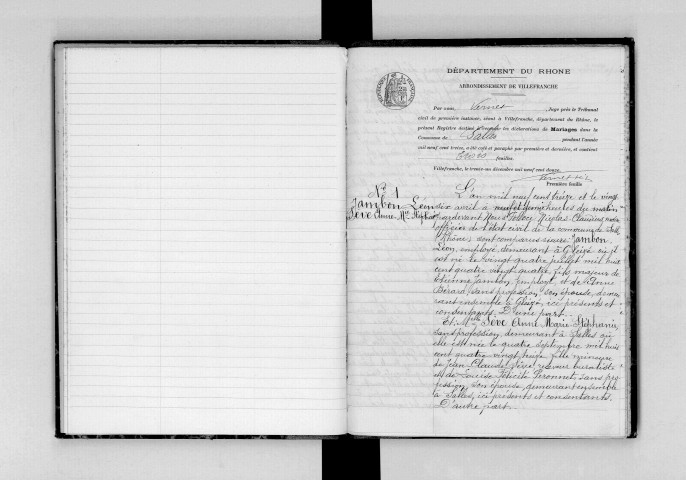 DÉPARTEMENT DU RHONE
ARRONDISSEMENT DE VILLEFRANCHE
Par nous, Juge près le Tribunal
civil de première instance, séant à Villefranche, département du Rhône, le
présent Registre destiné à recevoir les déclarations de Mariages dans la
Commune de Salles pendant l'année
mil neuf cent treize, a été coté et paraphé par première et dernière, et contient
trois feuilles.
Villefranche, le trente-un décembre mil neuf cent douze.
Première feuille
N° 1
Jambon Léon
Sève Anne Mie Stéphanie
L'an mil neuf cent treize et le vingt
six avril à neuf heures du matin
pardevant Nous Nicolas Claudius
officier de l'état civil de la commune de Salles
(Rhône), sont comparus sieur Jambon
Léon, employé, demeurant à Gleizé où il
est né le vingt quatre juillet mil huit
cent quatre vingt quatre, fils majeur de
Etienne Jambon, employé, et de Anne
Bérard, sans profession, son épouse, demeu
rant ensemble à Gleizé, ici présents et
consentants. D'une part.
Et Melle Sève Anne Marie Stéphanie,
sans profession, demeurant à Salles où
elle est née le quatre septembre mil huit
cent quatre vingt fille mineure
de Jean Claude Sève, receveur buraliste
et de Louise Félicité Peronnet, sans pro
fession, son épouse, demeurant ensemble
à Salles, ici présents et consentants.
D'autre part.